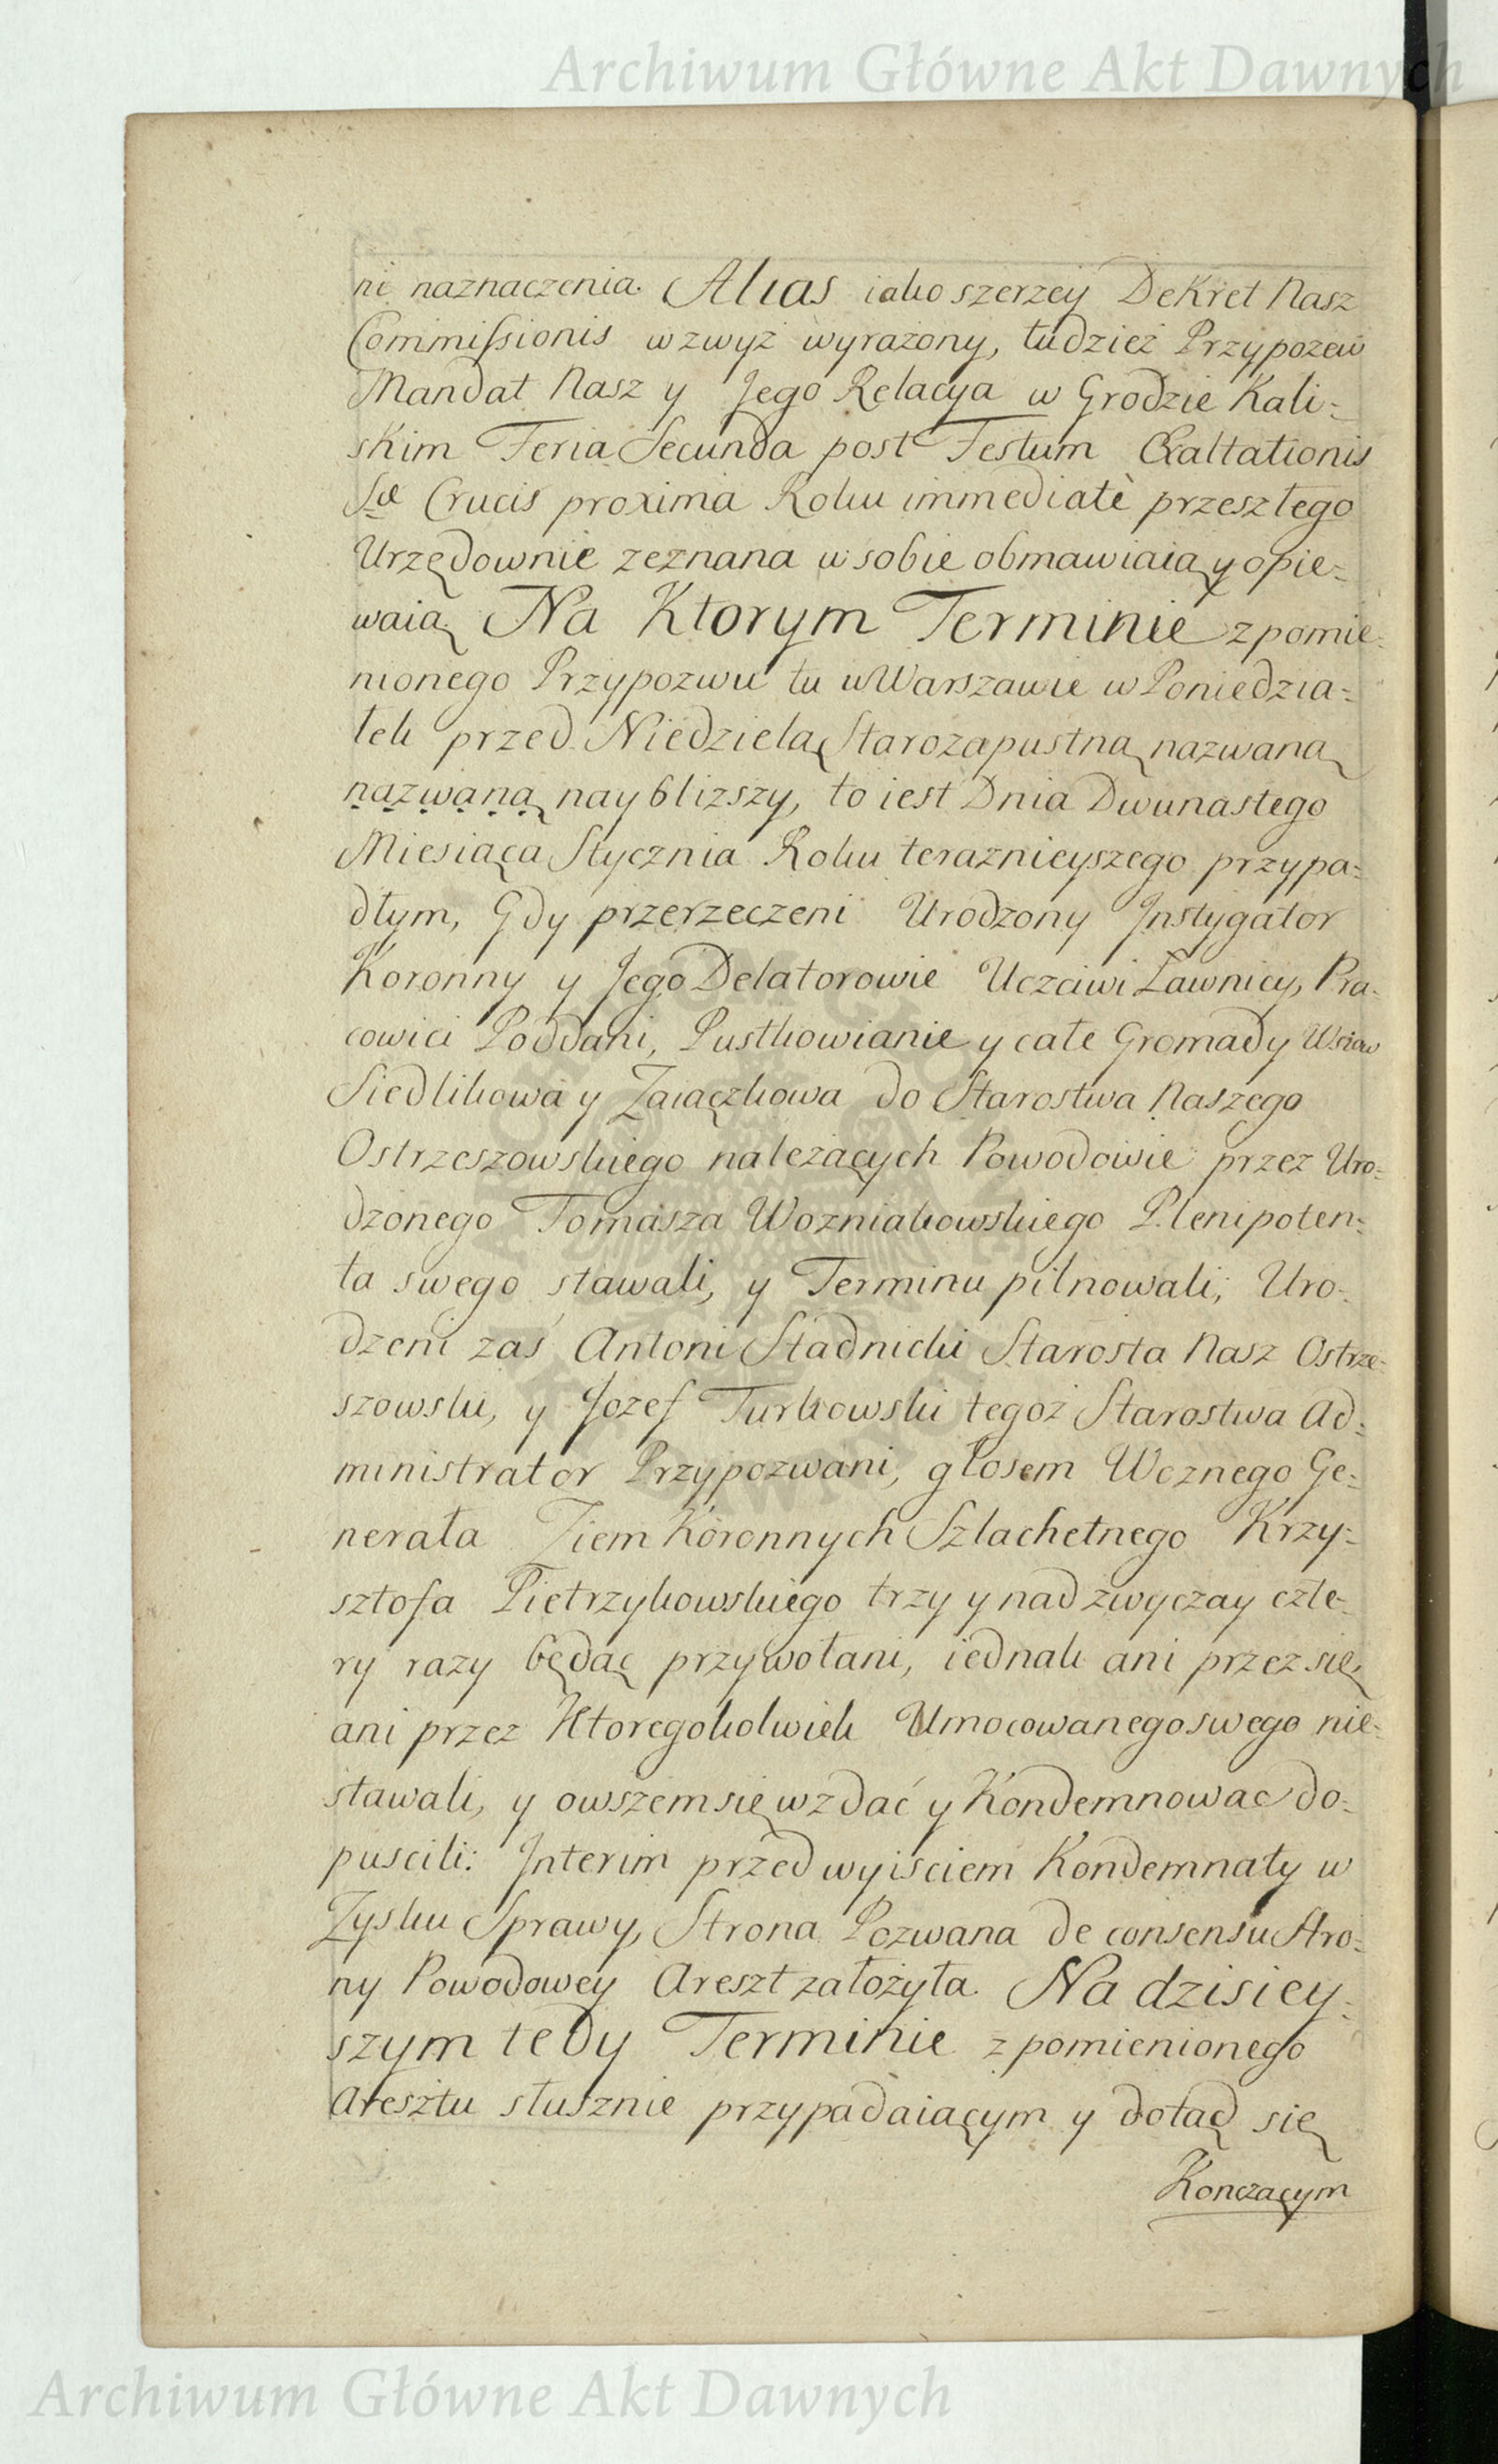 Archiwum Główne Akt Dawnych
ni naznaczenia. Alias iako szerzey Dekret Nasz
Commissionis wzwyż wyrażony, tudzież Przypozew
Mandat Nasz y Jego Relacya w Grodzie Kali=
skim Feria Secunda post Festum Exaltationis
Sæ Crucis proxima Roku immediatè przeszłego
Urzędownie zeznana w sobie obmawiaią y opie=
waią. Na Ktorym Terminie z pomie=
nionego Przypozwu tu w Warszawie w Poniedzia=
łek przed Niedzielą Starozapustną nazwaną
nazwaną nayblizszy, to iest Dnia Dwunastego
Miesiąca Stycznia Roku teraznieyszego przypa=
dłym, Gdy przerzeczeni Urodzony Instygator
Koronny y Jego Delatorowie Uczciwi Ławnicy, Pra=
cowici Poddani, Pustkowianie y całe Gromady Wsiow
Siedlikowa y Zaiączkowa do Starostwa Naszego
Ostrzeszowskiego należących Powodowie przez Uro=
dzonego Tomasza Wozniakowskiego Plenipoten=
ta swego stawali, y Terminu pilnowali; Uro=
dzeni zaś Antoni Stadnicki Starosta Nasz Ostrze=
szowski, y Jozef Turkowski tegoż Starostwa Ad=
ministrator Przypozwani, głosem Woznego Ge=
nerała Ziem Koronnych Szlachetnego Krzy=
sztofa Pietrzykowskiego trzy y nad zwyczay czte=
ry razy będąc przywołani, iednak ani przez się,
ani przez Ktoregokolwiek Umocowanego swego nie=
stawali, y owszem się wzdać y Kondemnowac do=
puscili: Interim przed wyisciem Kondemnaty w
Zysku Sprawy, Strona Pozwana de consensu Stro=
ny Powodowey Areszt założyła. Na dzisiey=
szym tedy Terminie z pomienionego
Aresztu słusznie przypadaiącym y dotąd się
Konczącym
Archiwum Główne Akt Dawnych